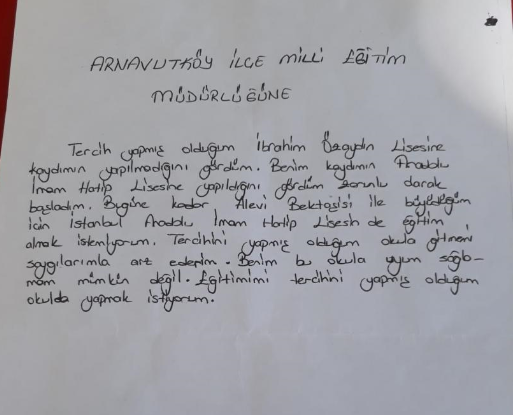 ARNAVUTKÖY İLCE MİLLİ EĞİTİM
MÜDÜRLÜĞÜNE
Tercih yapmış olduğum İbrahim Özaydın Lisesine
kaydımın yapılmadığını gördüm. Benim kaydımın Anadolu
İmam Hatip Lisesine yapıldığını gördüm zorunlu olarak
başladım. Bugüne kadar Alevi Bektaşisi ile büyüdüğüm
için İstanbul Anadolu İmam Hatip Lisesin de eğitim
almak istemiyorum. Tercihini yapmış olduğum okula gitmeni
saygılarımla arz ederim. Benim bu okula uyum sağla-
mam mümkün değil. Eğitimimi tercihini yapmış olduğum
okulda yapmak istiyorum.